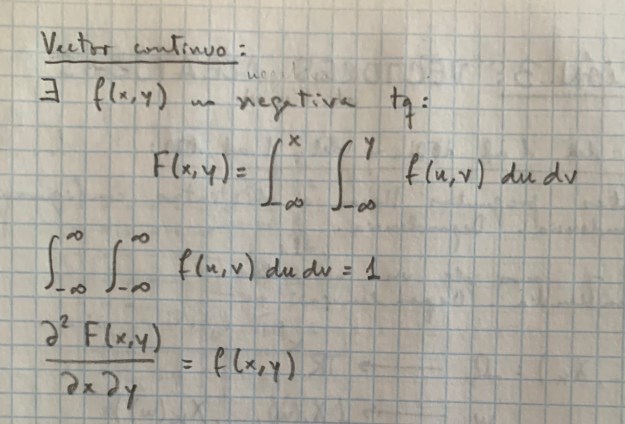 Vector continuo:
∃ f(x,y) no negativa tq:
F(x,y) = ∫_{-∞}^{x} ∫_{-∞}^{y} f(u,v) du dv
∫_{-∞}^{∞} ∫_{-∞}^{∞} f(u,v) du dv = 1
∂² F(x,y) / ∂x ∂y = f(x,y)